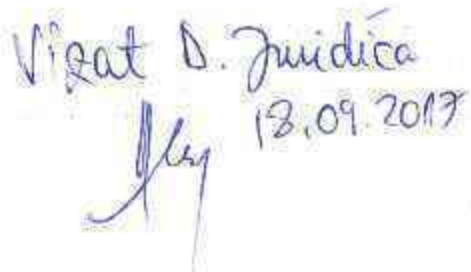 Vizat D. Juridica
18.09.2017